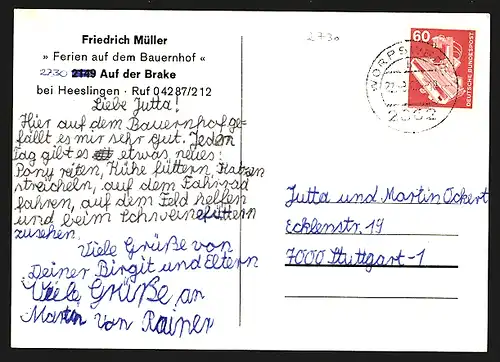 Friedrich Müller
» Ferien auf dem Bauernhof «
2730 2149 Auf der Brake
bei Heeslingen · Ruf 04287/212
Liebe Jutta!
Hier auf dem Bauernhof ge-
fällt es mir sehr gut. Jeden
Tag gibt es etwas neues:
Pony reiten, Kühe füttern, Katzen
streicheln, auf dem Fahrrad
fahren, auf dem Feld helfen
und beim Schweinefüttern
zusehen.
Viele Grüße von
Deiner Birgit und Eltern
Viele Grüße an
Martin von Rainer
2730
60
DEUTSCHE BUNDESPOST
WORPSWEDE
2862
Jutta und Martin Ockert
Ecklenstr. 19
7000 Stuttgart-1